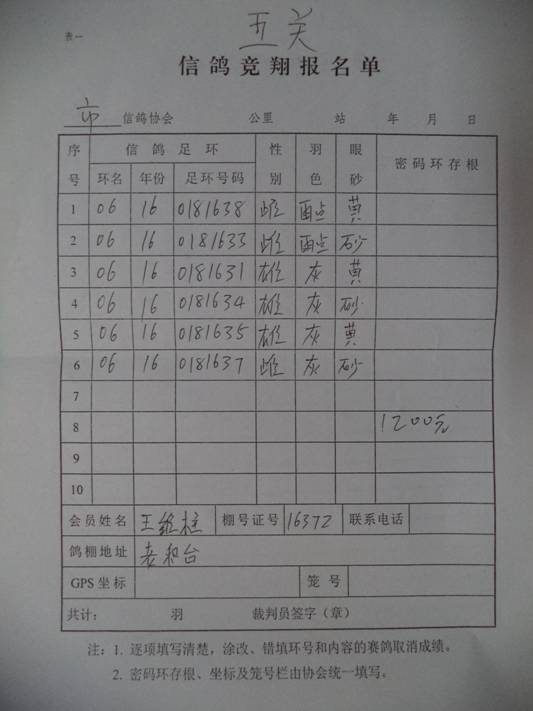 五关
表一
信鸽竞翔报名单
市 信鸽协会 公里 站 年 月 日
序号 信鸽足环 性别 羽色 眼砂 密码环存根
环名 年份 足环号码
1 06 16 0181638 雌 黄
2 06 16 0181633 雌 砂
3 06 16 0181631 雄 灰 黄
4 06 16 0181634 雄 灰 砂
5 06 16 0181635 雄 灰 黄
6 06 16 0181637 雌 灰 砂
7
8 1200元
9
10
会员姓名 王维柱 棚号证号 16372 联系电话
鸽棚地址 老和台
GPS坐标 笼号
共计: 羽 裁判员签字(章)
注:1. 逐项填写清楚,涂改、错填环号和内容的赛鸽取消成绩。
2. 密码环存根、坐标及笼号栏由协会统一填写。